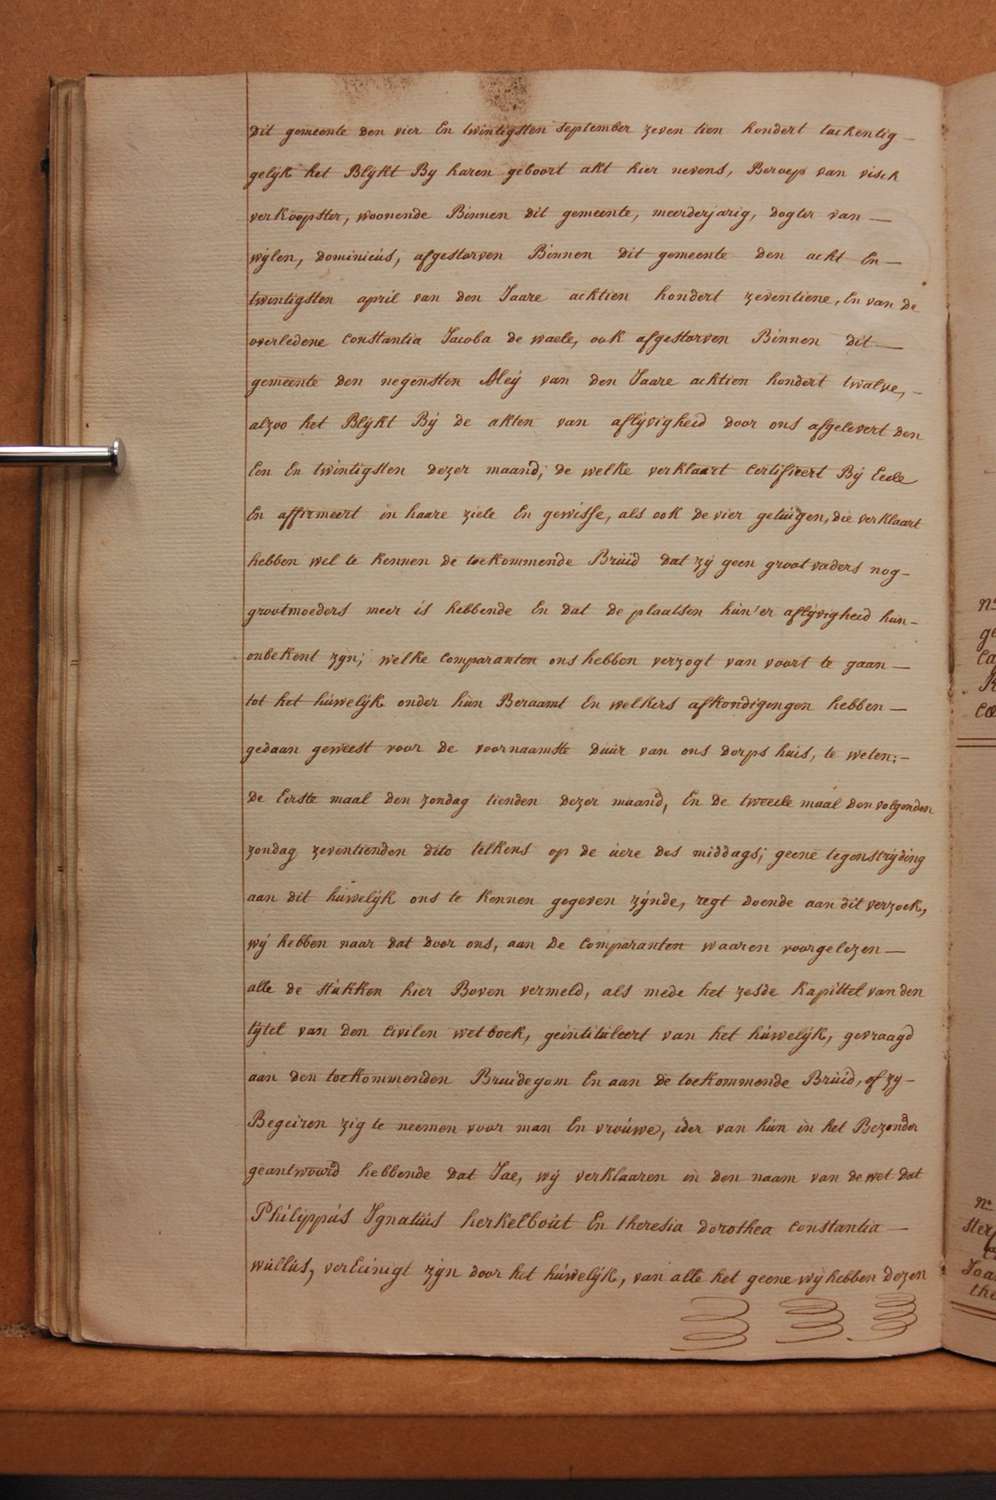 dit gemeente den vier En twintigsten september zeven tien hondert tachentig —
gelijk het Blijkt By haren geboort akt hier nevens, Beroep van visch
verkoopster, woonende Binnen dit gemeente, meerderjarig, dogter van —
wijlen, dominicús, afgestorven Binnen dit gemeente den acht En —
twintigsten april van den Jaare achtien hondert zeventiene, En van de
overledene Constantia Jacoba de waele, ook afgestorven Binnen dit —
gemeente den negensten Meij van den Jaare achtien hondert twalve, —
alzoo het Blijkt Bij de akten van aflijvigheid door ons afgelevert den
Een En twintigsten dezer maand; de welke verklaart Certifieert Bij Eede
En affirmeert in haare ziele En gewisse, als ook de vier getuigen, die verklaart
hebben wel te kennen de toekommende Brúid dat zij geen groot vaders nog —
grootmoeders meer is hebbende En dat de plaatsen hún'er aflijvigheid hún —
onbekent zijn; welke Comparanten ons hebben verzogt van voort te gaan —
tot het húwelijk onder hún Beraamt En welkers afkondigingen hebben —
gedaan geweest voor de voornaamste dúúr van ons dorps huis, te weten: —
de Eerste maal den zondag tienden dezer maand, En de tweede maal den volgenden
zondag zeventienden dito telkens op de úere des middags; geene tegenstrijding
aan dit húwelijk ons te kennen gegeven zijnde, regt doende aan dit verzoek,
wij hebben naar dat door ons, aan de Comparanten waaren voorgelezen —
alle de stúkken hier Boven vermeld, als mede het zesde kapittel van den
tijtel van den Civilen wetboek, geintituleert van het húwelijk, gevraagd
aan den toekommenden Bruidegom En aan de toekommende Brúid, of zy —
Begeiren zig te neemen voor man En vroúwe, ider van hún in het Bezonder
geantwoord hebbende dat Jae, wij verklaaren in den naam van de wet dat
Philippús Ignatiús herkelboút En theresia dorothea Constantia —
wúllús, verEinigt zijn door het húwelijk, van alle het geene wij hebben dezen